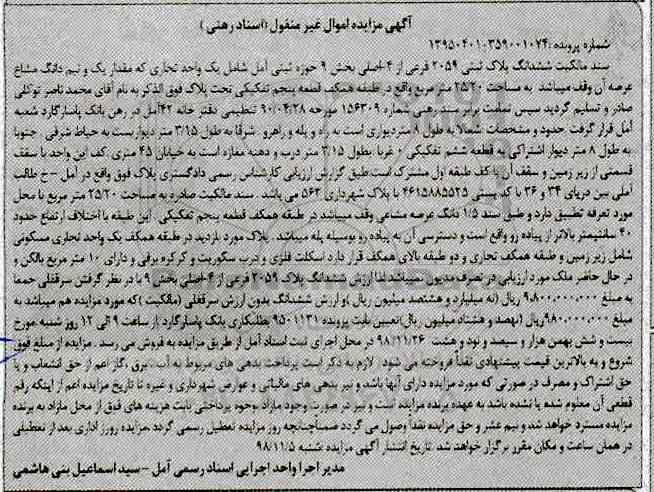 آگهی مزایده اموال غیر منقول (اسناد رهنی)
شماره پرونده: ۱۳۹۵۰۴۰۱۰۳۵۹۰۰۱۰۷۴
سند مالکیت ششدانگ پلاک ثبتی ۲۰۵۹ فرعی از ۴-اصلی بخش ۹ حوزه ثبتی آمل شامل یک واحد تجاری که مقدار یک و نیم دانگ مشاع
عرصه آن وقف میباشد به مساحت ۲۵/۲۰ متر مربع واقع در طبقه همکف قطعه پنجم تفکیکی تحت پلاک فوق الذکر به نام آقای محمد ناصر توکلی
صادر و تسلیم گردید سپس تمامت برابر سند رهنی شماره ۱۵۶۳۰۹ مورخه ۹۰/۰۴/۲۸ تنظیمی دفتر خانه ۴۲ آمل در رهن بانک پاسارگارد شعبه
آمل قرار گرفت حدود و مشخصات: شمالا به طول ۸ متر دیواری است به راه و پله و راهرو شرقا به طول ۳/۱۵ متر دیواریست به حیاط شرقی. جنوبا
به طول ۸ متر دیوار اشتراکی به قطعه ششم تفکیکی و غربا بطول ۳/۱۵ متر درب و دهنه مغازه است به خیابان ۴۵ متری. کف این واحد با سقف
قسمتی از زیر زمین و سقف آن با کف طبقه اول مشترک است طبق گزارش ارزیابی کارشناس رسمی دادگستری پلاک فوق واقع در آمل - خ طالب
آملی بین دریای ۳۴ و ۳۶ با کد پستی ۴۶۱۵۸۸۵۵۲۵ با پلاک شهرداری ۵۶۳ می باشد. سند مالکیت صادره به مساحت ۲۵/۲۰ متر مربع با محل
مورد تعرفه تطبیق دارد و طبق سند ۱/۵ دانگ عرصه مشاعی وقف میباشد در طبقه همکف قطعه پنجم تفکیکی. این طبقه با اختلاف ارتفاع حدود
۴۰ سانتیمتر بالاتر از پیاده رو واقع است و دسترسی آن به پیاده رو بوسیله پله میباشد. پلاک مورد بازدید در طبقه همکف یک واحد تجاری مسکونی
شامل زیر زمین و طبقه همکف تجاری و دو طبقه بالای همکف قرار دارد اسکلت فلزی و درب سکوریت و کرکره برقی و دارای ۱۰ متر مربع بالکن و
در حال حاضر ملک مورد ارزیابی در تصرف مدیون میباشد لذا ارزش ششدانگ پلاک ۲۰۵۹ فرعی از ۴-اصلی بخش ۹ با در نظر گرفتن سرقفلی جمعا
به مبلغ ۹،۸۰۰،۰۰۰،۰۰۰ ریال (نه میلیارد و هشتصد میلیون ریال) و ارزش ششدانگ بدون ارزش سرقفلی (مالکیت) که مورد مزایده هم میباشد به
مبلغ ۹۸۰،۰۰۰،۰۰۰ ریال (نهصد و هشتاد میلیون ریال) تعیین بابت پرونده ۹۵۰۱۱۳۱ بطلبکاری بانک پاسارگارد از ساعت ۹ الی ۱۲ روز شنبه مورخ
بیست و شش بهمن هزار و سیصد و نود و هشت ۹۸/۱۱/۲۶ در محل اجرای ثبت اسناد آمل از طریق مزایده به فروش می رسد. مزایده از مبلغ فوق
شروع و به بالاترین قیمت پیشنهادی نقداً فروخته می شود. لازم به ذکر است پرداخت بدهی های مربوط به آب، برق، گاز اعم از حق انشعاب و یا
حق اشتراک و مصرف در صورتی که مورد مزایده دارای آنها باشد و نیز بدهی های مالیاتی و عوارض شهرداری و غیره تا تاریخ مزایده اعم از اینکه رقم
قطعی آن معلوم شده یا نشده باشد به عهده برنده مزایده است و نیز در صورت وجود مازاد، وجوه پرداختی بابت هزینه های فوق از محل مازاد به برنده
مزایده مسترد خواهد شد و نیم عشر و حق مزایده نقداً وصول می گردد ضمناً چنانچه روز مزایده تعطیل رسمی گردد، مزایده روز اداری بعد از تعطیلی
در همان ساعت و مکان مقرر برگزار خواهد شد. تاریخ انتشار آگهی مزایده: شنبه ۹۸/۱۱/۵
مدیر اجرا واحد اجرایی اسناد رسمی آمل - سید اسماعیل بنی هاشمی